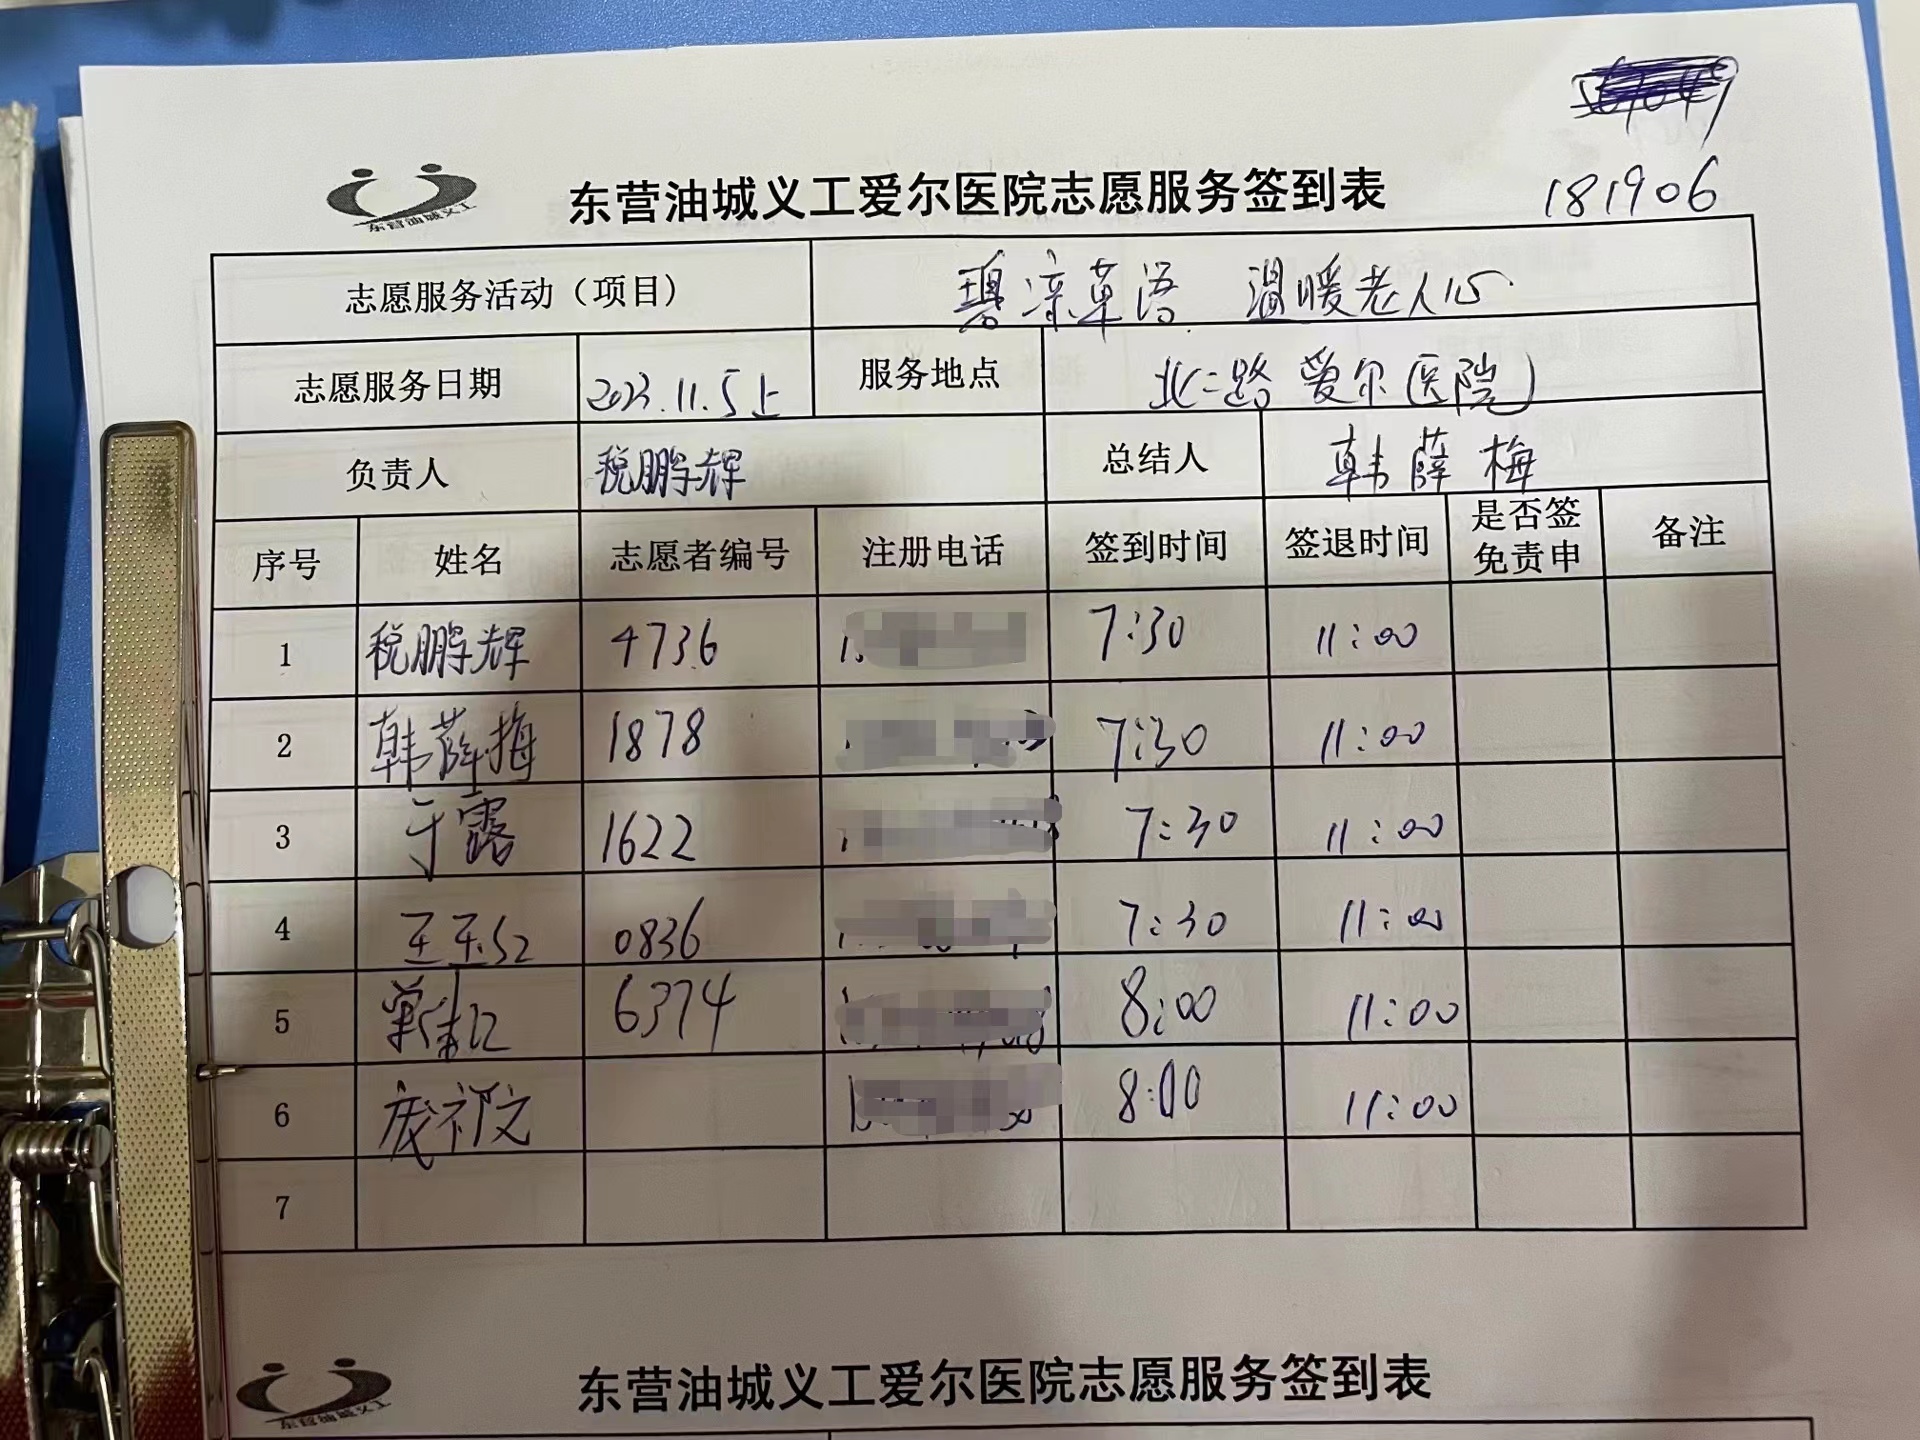 181906
东营油城义工
东营油城义工爱尔医院志愿服务签到表
志愿服务活动（项目） 温暖老人心
志愿服务日期 2023.11.5上 服务地点 北二路爱尔医院
负责人 税鹏辉 总结人 韩薛梅
序号 姓名 志愿者编号 注册电话 签到时间 签退时间 是否签免责申 备注
1 税鹏辉 4736 7:30 11:00
2 韩薛梅 1878 7:30 11:00
3 于露 1622 7:30 11:00
4 0836 7:30 11:00
5 6374 8:00 11:00
6 庞祁文 8:00 11:00
7
东营油城义工
东营油城义工爱尔医院志愿服务签到表